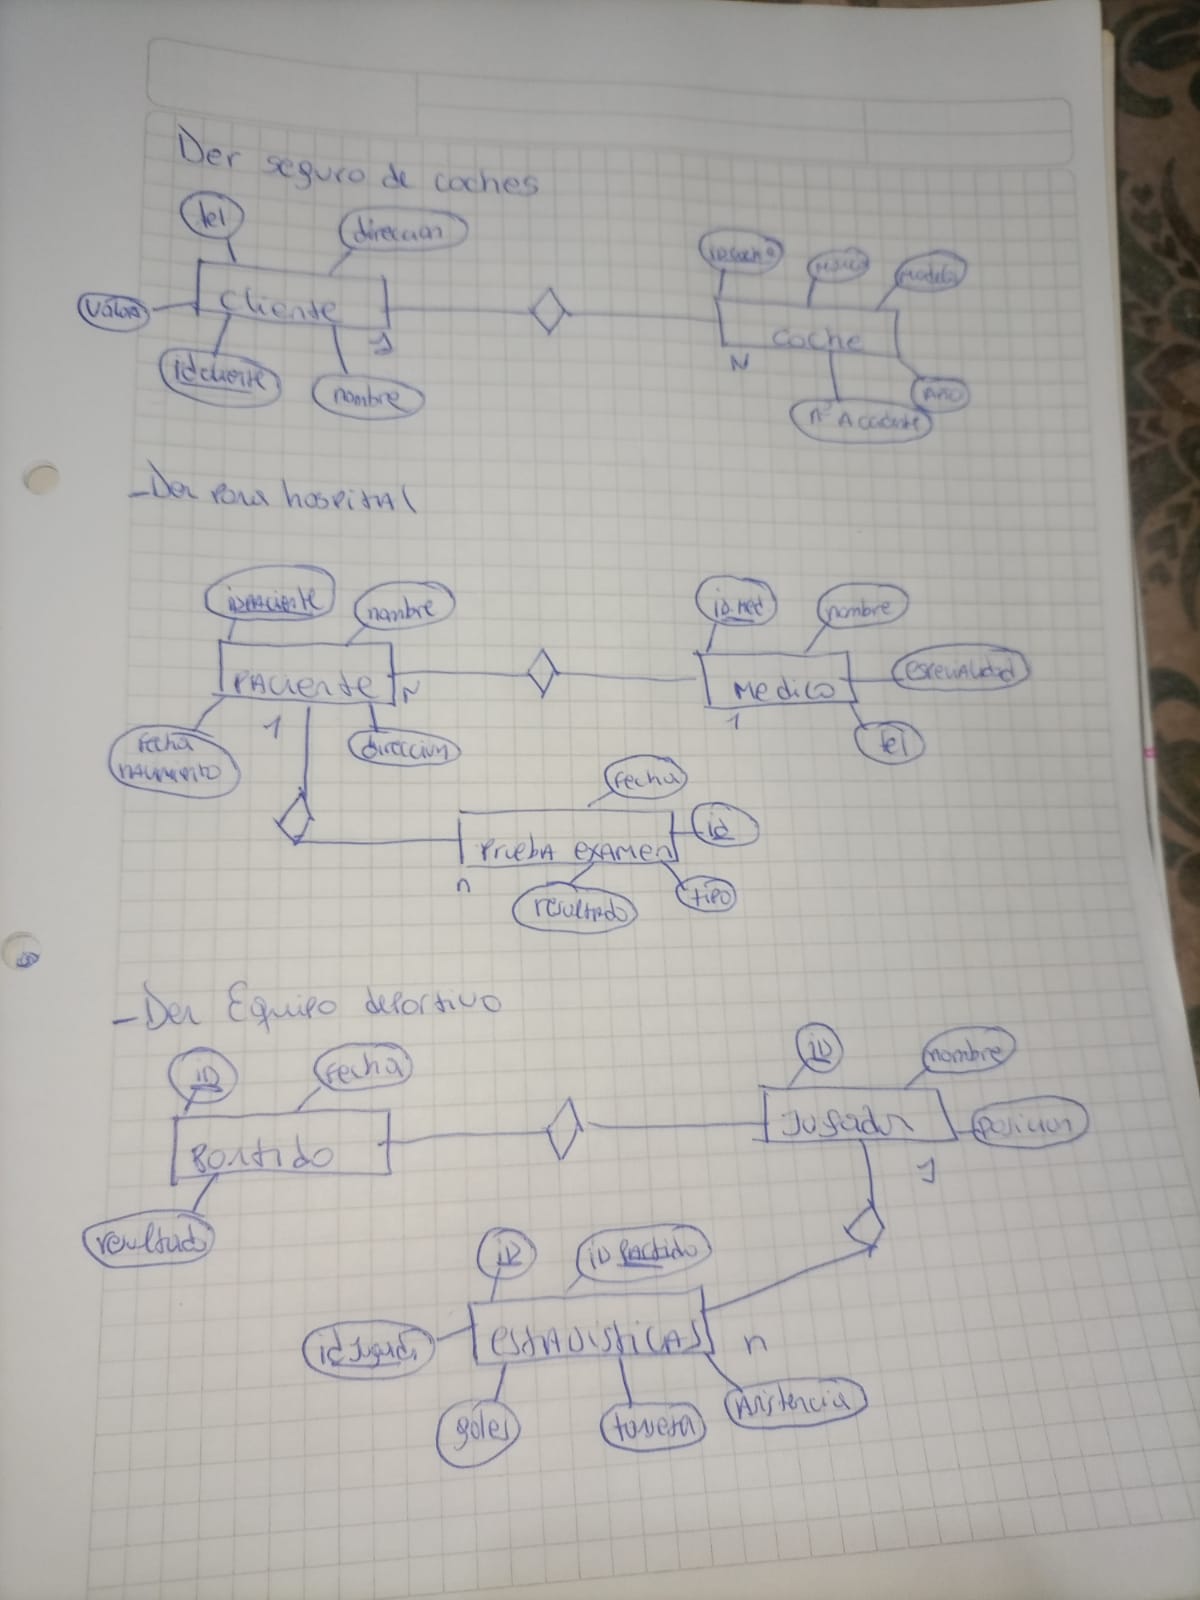 Der seguro de coches
tel
direccion
Valor
Cliente
1
idcliente
nombre
idcoche
Marca
Modelo
coche
N
Año
nº Accidente
-Der para hospital
idPAciente
nombre
PAciente
N
1
Fecha
nacimiento
direccion
id med
nombre
Medico
1
especialidad
tel
Fecha
id
PruebA exAmen
n
resultado
tipo
-Der Equipo deportivo
iD
Fecha
Partido
resultado
iD
nombre
Jugador
posicion
1
iD
iD Partido
id Jugador
estadisticas
n
goles
tarjeta
Asistencia